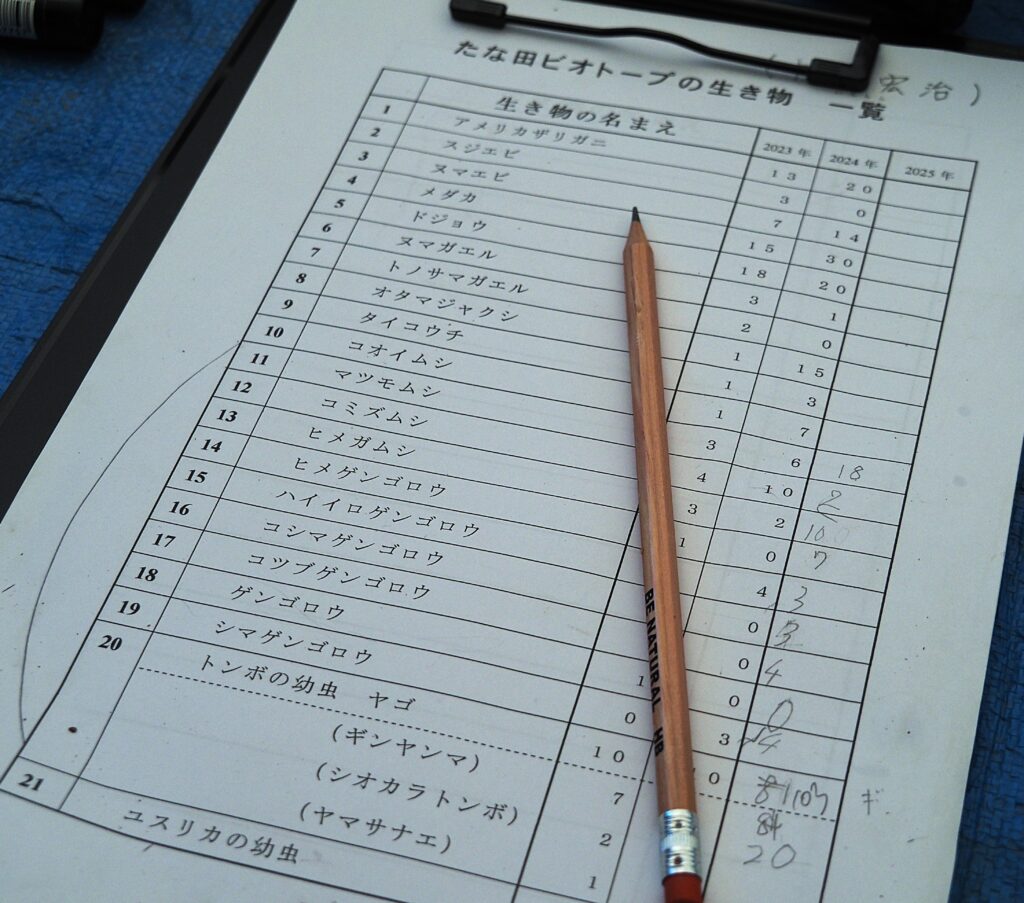 たな田ビオトープの生き物 一覧
宏治)
生き物の名まえ 2023年 2024年 2025年
1 アメリカザリガニ 13 20
2 スジエビ 3 0
3 ヌマエビ 7 14
4 メダカ 15 30
5 ドジョウ 18 20
6 ヌマガエル 3 1
7 トノサマガエル 2 0
8 オタマジャクシ 1 15
9 タイコウチ 1 3
10 コオイムシ 1 7
11 マツモムシ 3 6 18
12 コミズムシ 4 10 2
13 ヒメガムシ 3 2 10
14 ヒメゲンゴロウ 1 0 7
15 ハイイロゲンゴロウ 4 3
16 コシマゲンゴロウ 0
17 コツブゲンゴロウ 0 4
18 ゲンゴロウ 1 0 0
19 シマゲンゴロウ 0 3 4
20 トンボの幼虫 ヤゴ 10 0
(ギンヤンマ) 7
(シオカラトンボ) 2 20
(ヤマサナエ) 1
21 ユスリカの幼虫
ギ
BE NATURAL HB